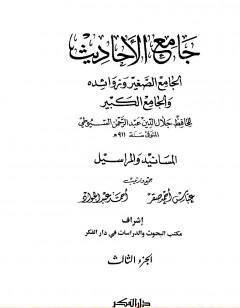 جامع الأحاديث
الجامع الصغير وزوائده
والجامع الكبير
للحافظ جلال الدين عبد الرحمن السيوطي
المتوفى سنة ٩١١هـ
المسانيد والمراسيل
جمع وترتيب
عباس أحمد صقر أحمد عبد الجواد
إشراف
مكتب البحوث والدراسات في دار الفكر
الجزء الثالث
دار الفكر